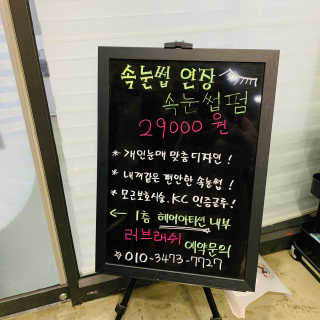 속눈썹 연장
속눈썹펌
29000원
* 개인눈매 맞춤디자인!
* 내꺼같은 편안한 속눈썹!
* 모근보호시술. KC 인증글루!
← 1층 헤어아티션 내부
러브래쉬 예약문의
☆ 010-3473-7727